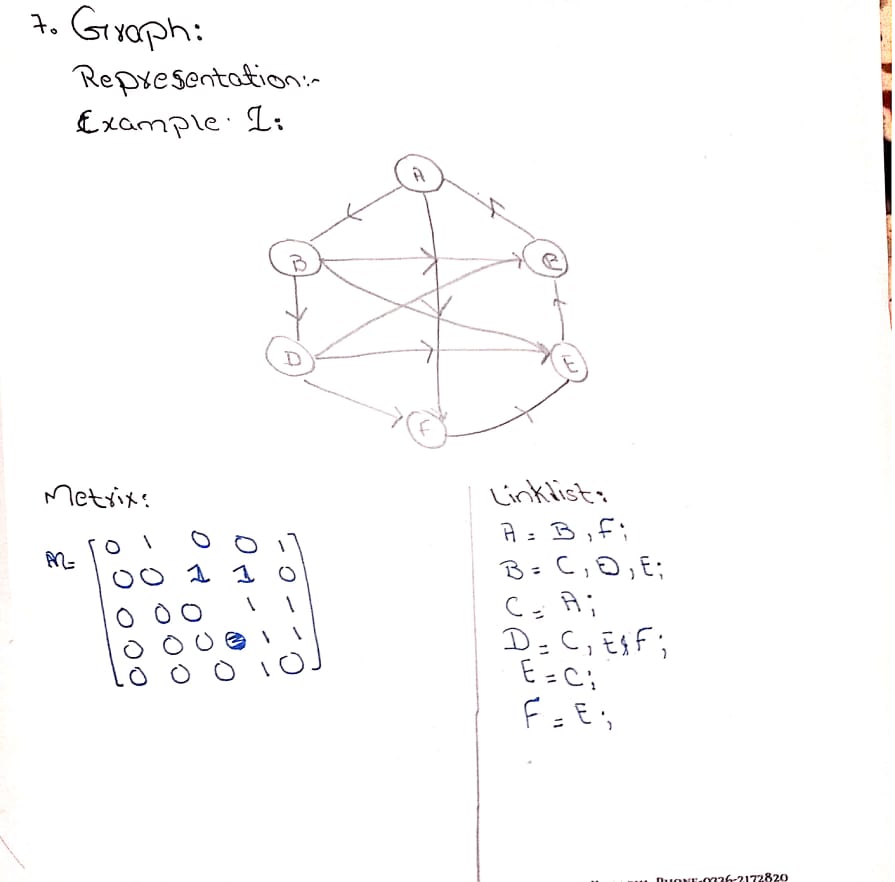 7. Graph:
Representation:-
Example. 1:
A
B
D
E
F
Metrix:
M= 0 1 0 0 1
0 0 1 1 0
0 0 0 1 1
0 0 0 1 1
0 0 0 1 0
Linklist:
A = B, F;
B = C, D, E;
C = A;
D = C, E & F;
E = C;
F = E;
PHONE-0336-2172820